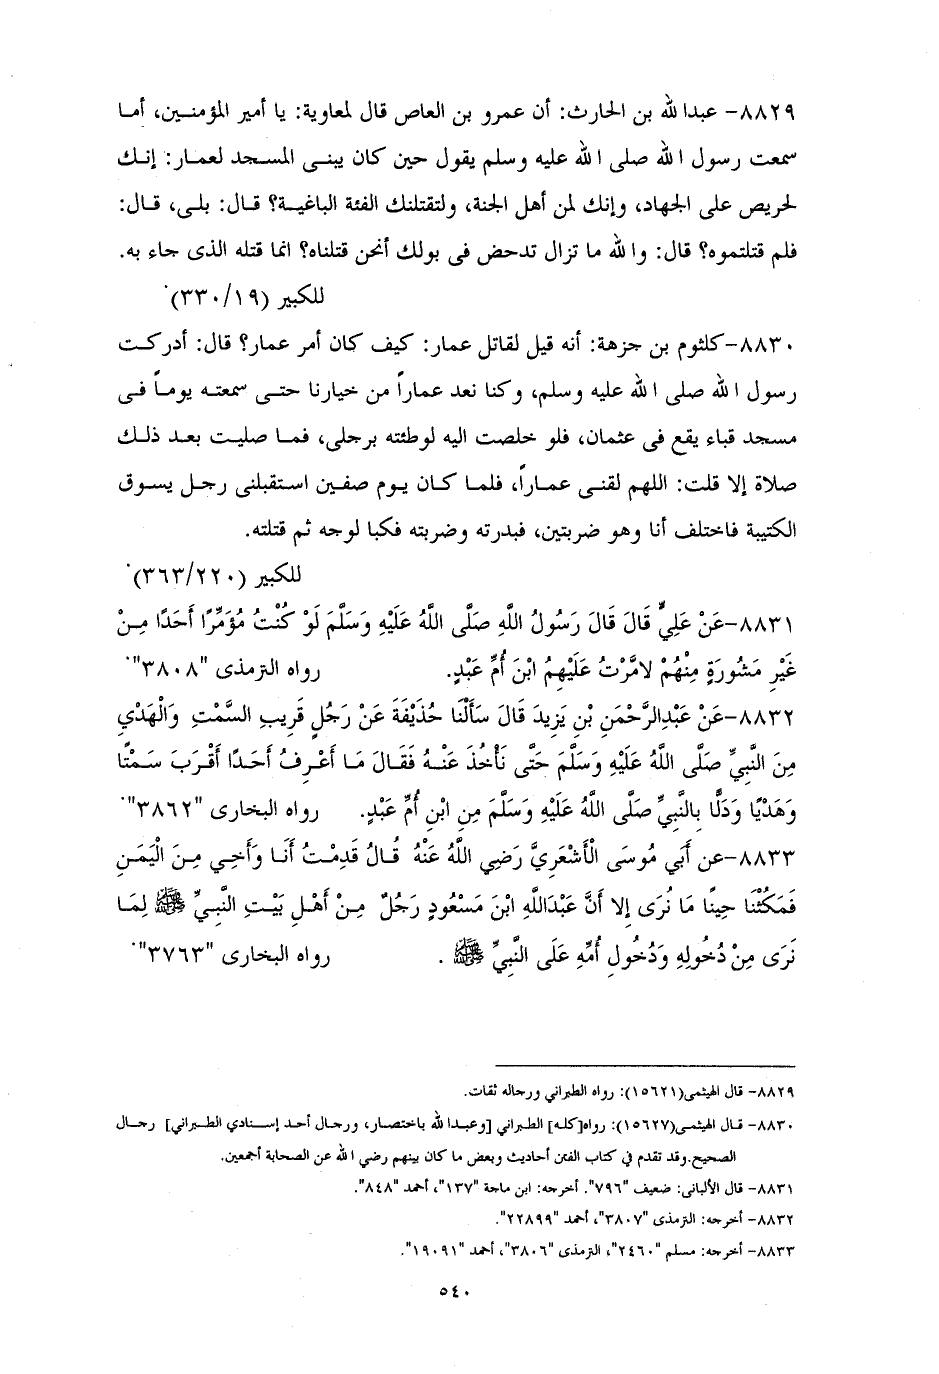 ٨٨٢٩- عبدا لله بن الحارث: أن عمرو بن العاص قال لمعاوية: يا أمير المؤمنـين، أمـا
سمعت رسول ا لله صلى ا لله عليه وسلم يقول حين كان يبنى المسجد لعمار: إنـك
لحريص على الجهاد، وإنك لمن أهل الجنة، ولتقتلنك الفئة الباغيـة؟ قـال: بلـى، قـال:
فلم قتلتموه؟ قال: وا لله ما تزال تدحض فى بولك أنحن قتلناه؟ انما قتله الذى جاء به.
للكبير (٣٣٠/١٩)
٨٨٣٠-كلثوم بن جزهة: أنه قيل لقاتل عمار: كيف كان أمر عمار؟ قال: أدركـت
رسول ا لله صلى ا لله عليه وسلم، وكنا نعد عماراً من خيارنا حتـى سمعتـه يومـاً فـى
مسجد قباء يقع فى عثمان، فلو خلصت اليه لوطئته برجلى، فمـا صليـت بعـد ذلـك
صلاة إلا قلت: اللهم لقنـى عمـاراً، فلمـا كـان يـوم صفـين اسـتقبلنى رجـل يسـوق
الكتيبة فاختلف أنا وهو ضربتين، فبدرته وضربته فكبا لوجه ثم قتلته.
للكبير (٣٦٣/٢٢٠)
٨٨٣١-عَنْ عَلِيٍّ قَالَ قَالَ رَسُولُ اللَّهِ صَلَّى اللَّهُ عَلَيْهِ وَسَلَّمَ لَوْ كُنْتُ مُؤَمِّرًا أَحَدًا مِـنْ
غَيْرِ مَشُورَةٍ مِنْهُمْ لامَّرْتُ عَلَيْهِمُ ابْنَ أُمِّ عَبْدٍ. رواه الترمذى "٣٨٠٨"
٨٨٣٢-عَنْ عَبْدِالرَّحْمَنِ بْنِ يَزِيدَ قَالَ سَأَلْنَا حُذَيْفَةَ عَنْ رَجُلٍ قَرِيبِ السَّمْتِ وَالْهَدْيِ
مِنَ النَّبِيِّ صَلَّى اللَّهُ عَلَيْهِ وَسَلَّمَ حَتَّى نَأْخُذَ عَنْـهُ فَقَـالَ مَـا أَعْـرِفُ أَحَـدًا أَقْـرَبَ سَـمْتًا
وَهَدْيًا وَدَلًّا بِالنَّبِيِّ صَلَّى اللَّهُ عَلَيْهِ وَسَلَّمَ مِنِ ابْنِ أُمِّ عَبْدٍ. رواه البخارى "٣٨٦٢"
٨٨٣٣-عن أَبِي مُوسَى الْأَشْعَرِيَّ رَضِي اللَّهُ عَنْهُ قُـالُ قَدِمْـتُ أَنَـا وَأَخِـي مِـنَ الْيَمَـنِ
فَمَكُثْنَا حِينًا مَا نُرَى إِلا أَنَّ عَبْدَاللَّهِ ابْنَ مَسْعُودٍ رَجُلٌ مِـنْ أَهْـلِ بَيْـتِ النَّبِيِّ ﷺ لِمَـا
نَرَى مِنْ دُخُولِهِ وَدُخُولِ أُمِّهِ عَلَى النَّبِيِّ ﷺ . رواه البخارى "٣٧٦٣"
٨٨٢٩- قال الهيثمى(١٥٦٢١): رواه الطبراني ورجاله ثقات.
٨٨٣٠- قـال الهيثمـى(١٥٦٢٧): رواه[كلـه] الطبراني [وعبـدا لله باختصـار، ورجـال أحـد إسـنادي الطـبراني] رجـال
الصحيح.وقد تقدم في كتاب الفتن أحاديث وبعض ما كان بينهم رضي ا لله عن الصحابة أجمعين.
٨٨٣١- قال الألبانى: ضعيف "٧٩٦". أخرجه: ابن ماجة "١٣٧"، أحمد "٨٤٨".
٨٨٣٢- أخرجه: الترمذى "٣٨٠٧"، أحمد "٢٢٨٩٩".
٨٨٣٣- أخرجه: مسلم "٢٤٦٠"، الترمذى "٣٨٠٦"، أحمد "١٩٠٩١".
٥٤٠